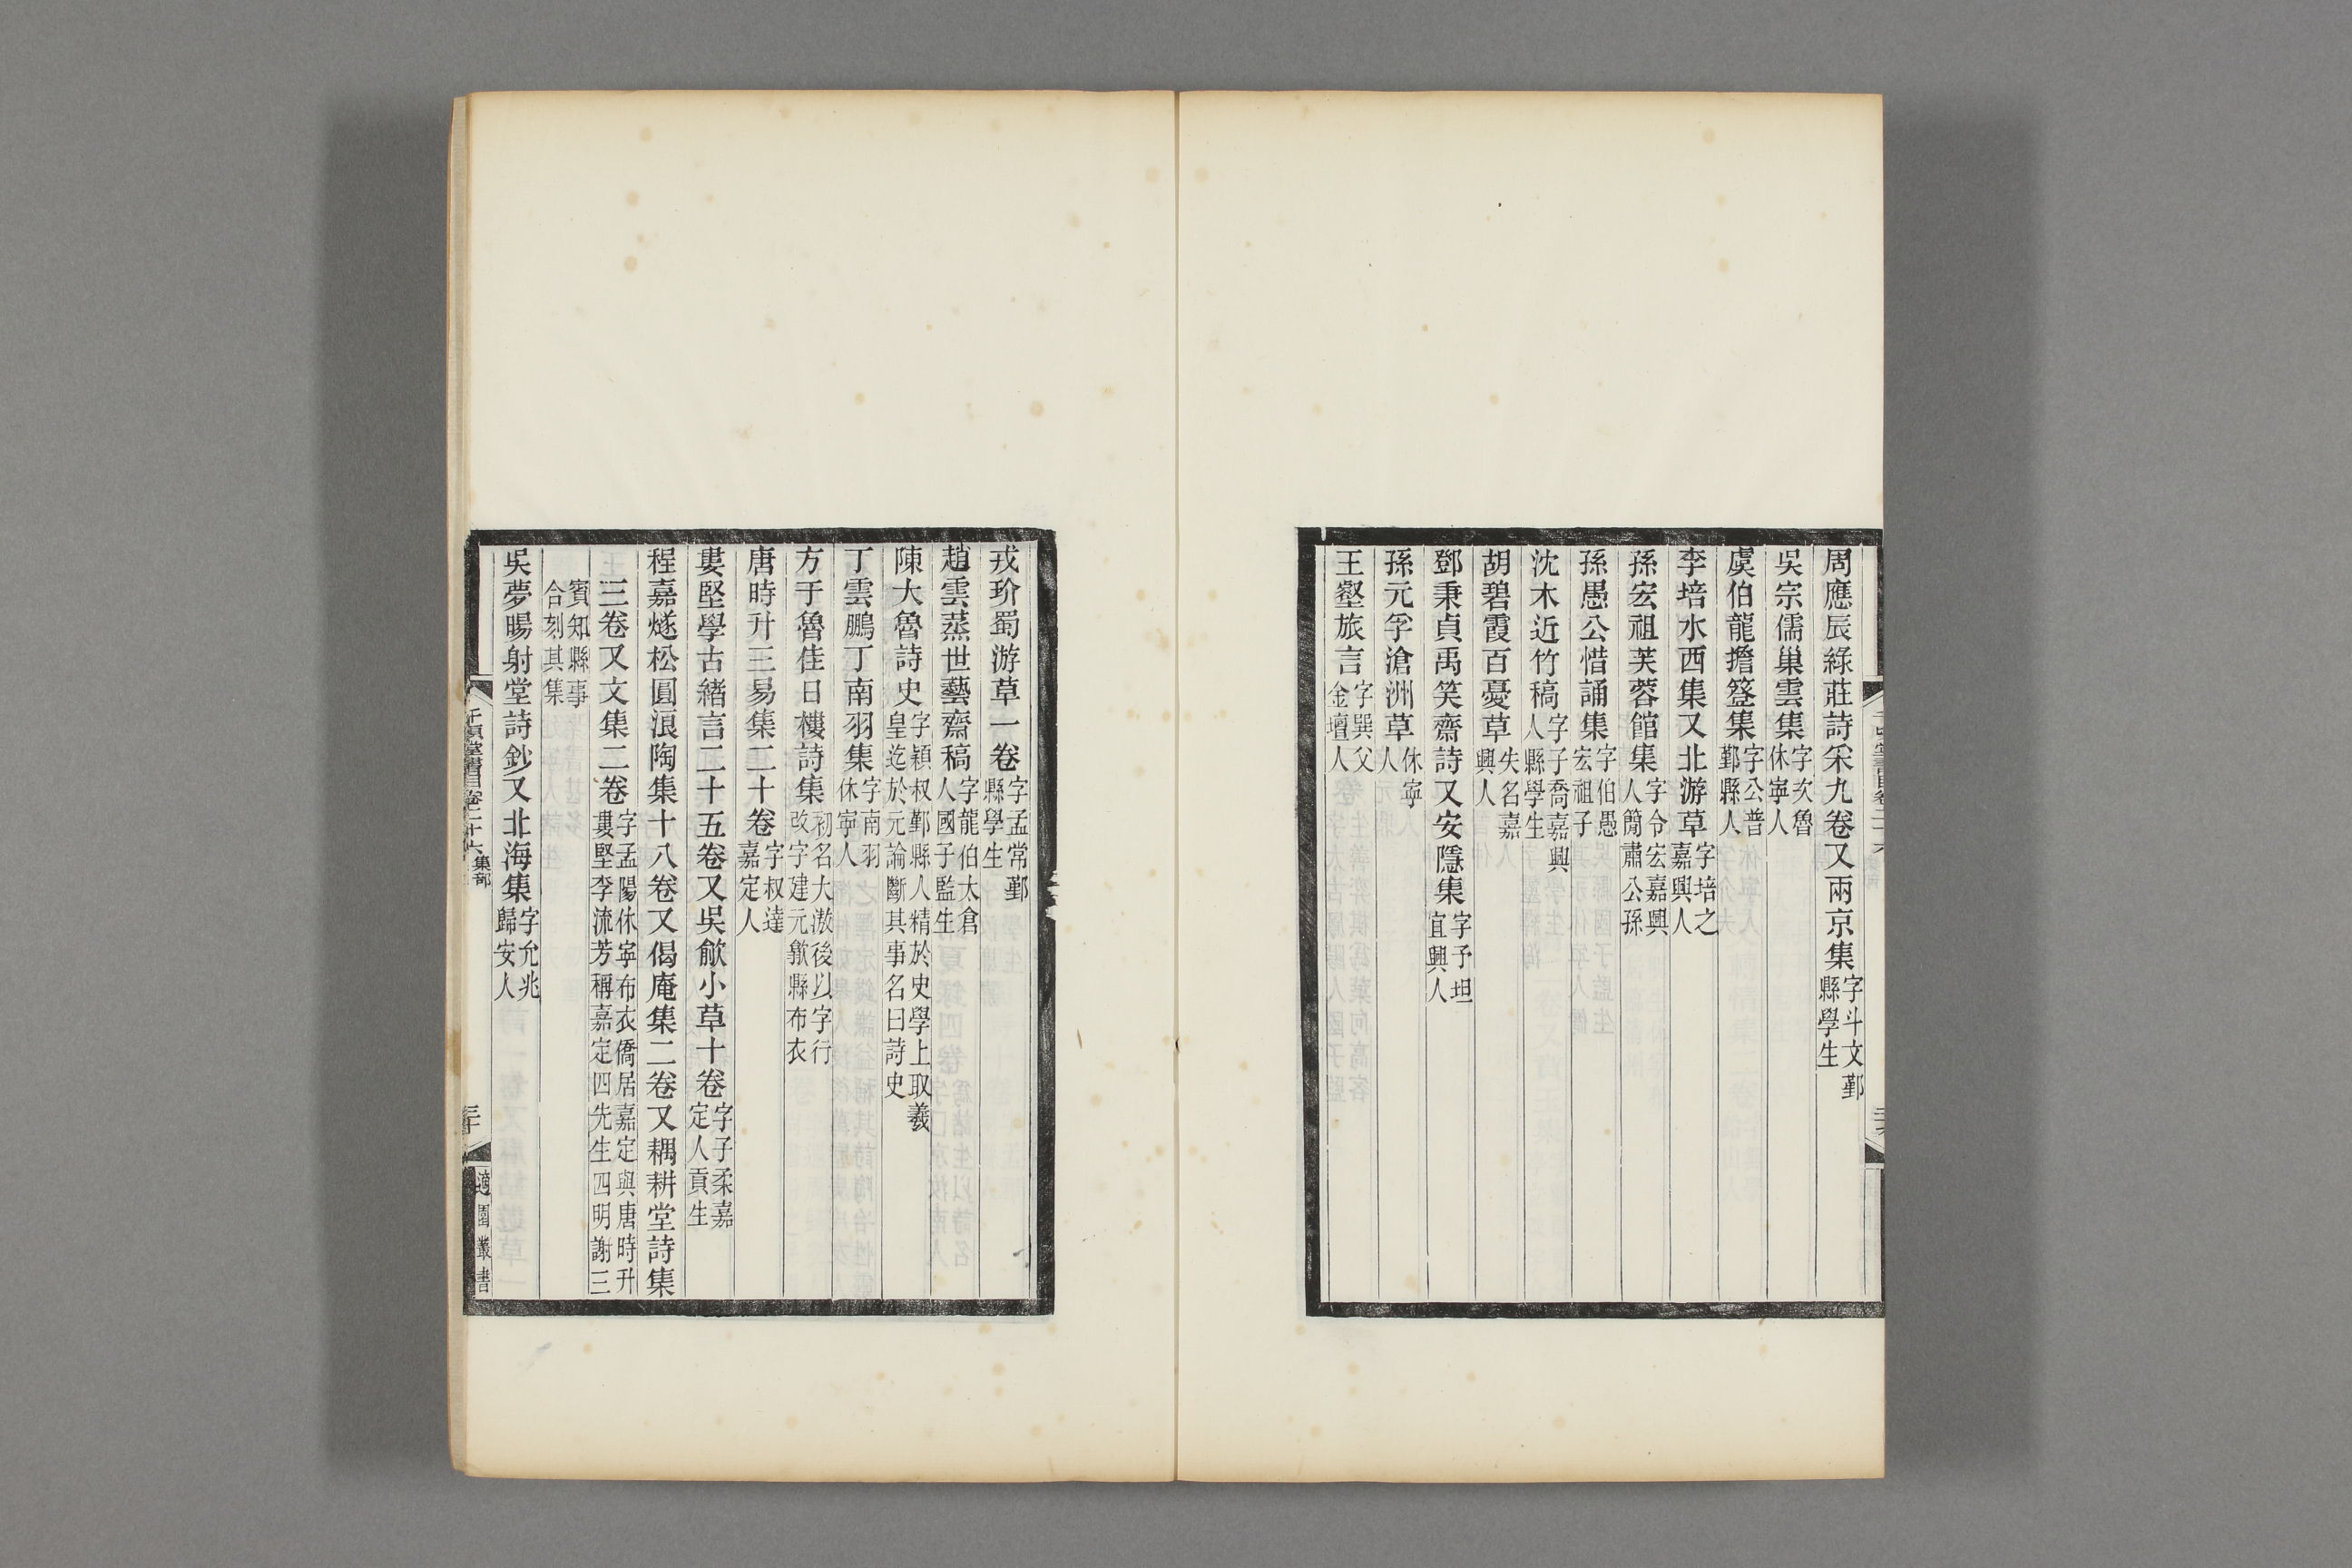 周應辰綠莊詩采九卷又兩京集字斗文鄞縣學生
吳宗儒巢雲集字次魯休寧人
虞伯龍擔簦集字公普鄞縣人
李培水西集又北游草字培之嘉興人
孫宏祖芙蓉館集字令宏嘉興人簡肅公孫
孫愚公惜誦集字伯愚宏祖子
沈木近竹稿字子喬嘉興人縣學生
胡碧霞百憂草失名嘉興人
鄧秉貞禹笑齋詩又安隱集字予坦宜興人
孫元孚滄洲草休寧人
王壑旅言字巽父金壇人
戎玠蜀游草一卷字孟常鄞縣學生
趙雲蒸世藝齋稿字龍伯太倉人國子監生
陳大魯詩史字穎叔鄞縣人精於史學上取羲皇迄於元論斷其事名曰詩史
丁雲鵬丁南羽集字南羽休寧人
方于魯佳日樓詩集初名大激後以字行改字建元歙縣布衣
唐時升三易集二十卷字叔達嘉定人
婁堅學古緒言二十五卷又吳歈小草十卷字子柔嘉定人貢生
程嘉燧松圓浪陶集十八卷又偈庵集二卷又耦耕堂詩集
三卷又文集二卷字孟陽休寧布衣僑居嘉定與唐時升婁堅李流芳稱嘉定四先生四明謝三
賓知縣事合刻其集
吳夢暘射堂詩鈔又北海集字允兆歸安人
千頃堂書目卷二十六 集部
三十
適園叢書